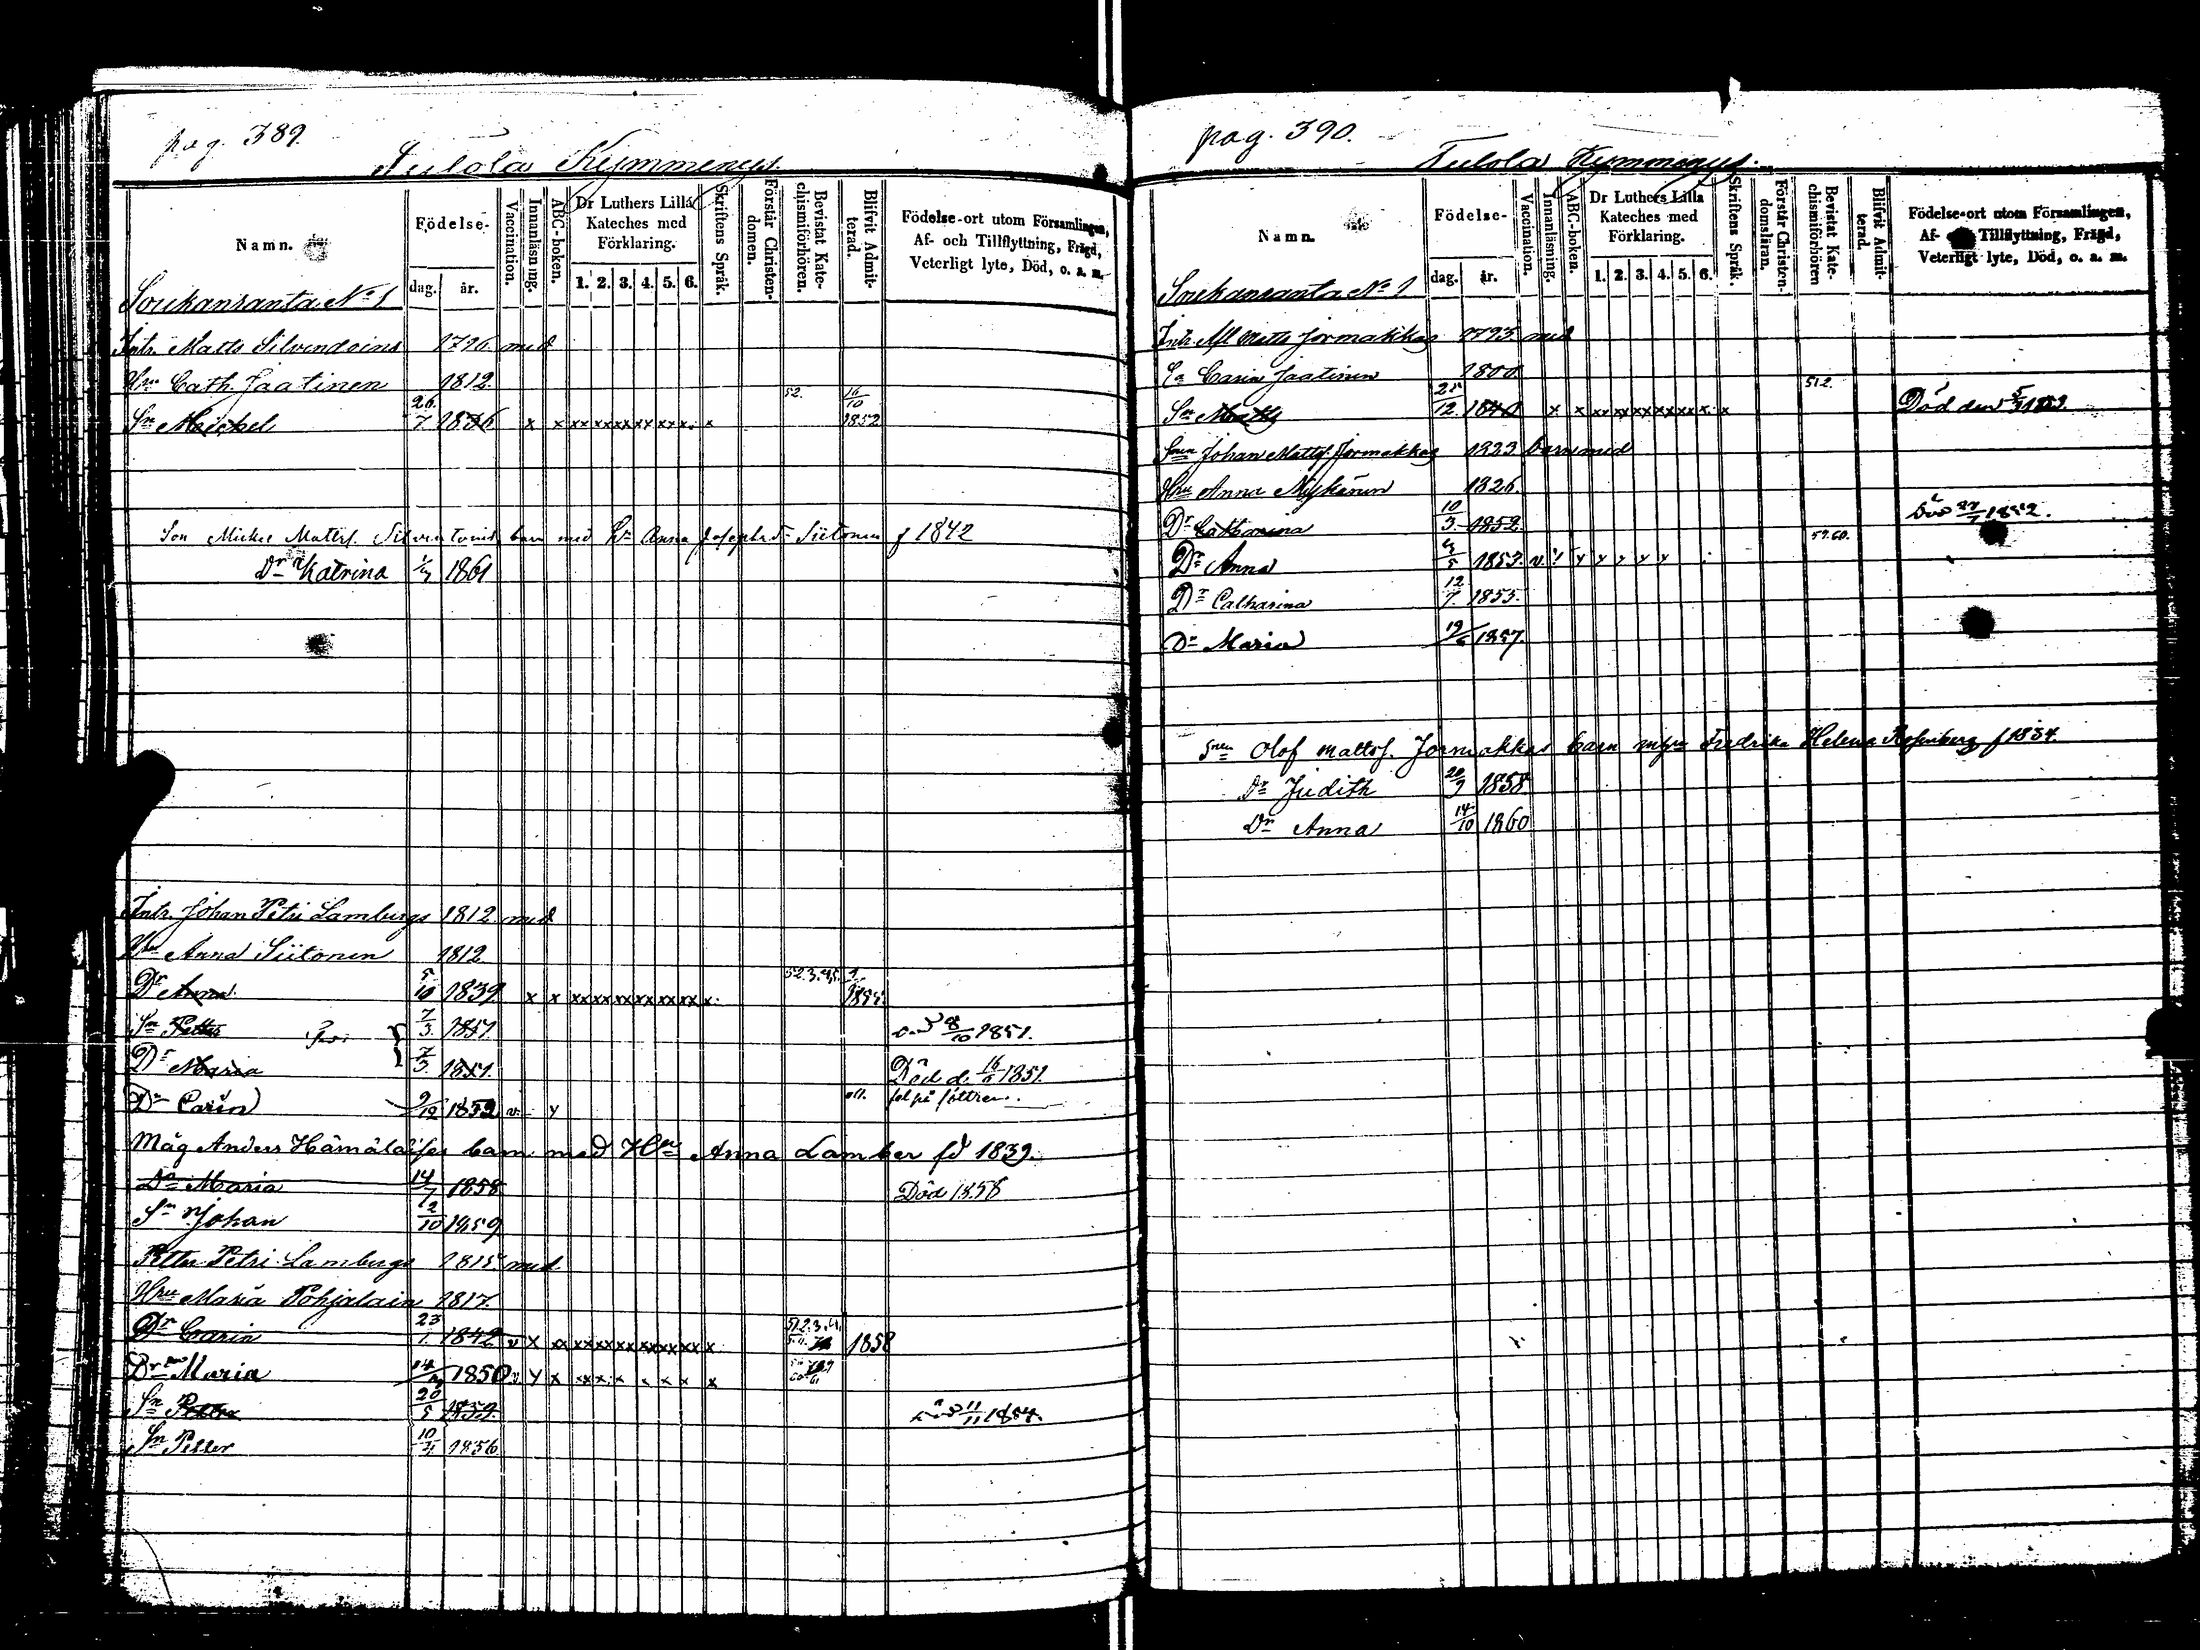 pag. 389.
Tulola Kymmenys
Namn.
Födelse-
dag. år.
Vaccination.
Innanläsning.
ABC-boken.
Dr Luthers Lilla Kateches med Förklaring.
1. 2. 3. 4. 5. 6.
Skriftens Språk.
Förstår Christendomen.
Bevistat Katechismiförhören.
Blifvit Admitterad.
Födelse-ort utom Församlingen,
Af- och Tillflyttning, Frägd,
Veterligt lyte, Död, o. a. m.
Soukansaanta No 1
Inh. Matts Silvendoins 1796 med
Hru Cath. Jaatinen 1812.
Sn Michel 26/7 1836 x x xx xx xx xx xx x. x 52. 16/10 1852
Son Mickel Matts. Silventoins barn med Hu Anna Josephsd. Siitonen f 1842
Dr Katrina 1861
Inh. Johan Petri Lambergs 1812 med
Hru Anna Siitonen 1812
Dr Anna 5/10 1839 x x xx xx xx xx xx xx x. 1855.
Sn Petter 7/3 1851 8/10 1851.
Dr Maria 7/3 1851. Död d. 1851.
Dr Carin 9/12 1852 v. y fel på föttren.
Måg Anders Hämäläises barn med Hu Anna Lamber fd 1839.
Dr Maria 14/7 1858 Död 1858
Sn Johan 12/10 1859
Petter Petri Lambergs 1815 med
Hru Maria Pohjalain 1817.
Dr Caria 23/1. 1842 v x xx xx xx xx xx xx xx x 1858
Dr Maria 1850 v. y x xx x. x x x x x
Sn Petter 20/5 1852. 11/11 1854.
Sn Petter 10/4 1856
pag. 390.
Tulola Kymmenys.
Namn.
Födelse-
dag. år.
Vaccination.
Innanläsning.
ABC-boken.
Dr Luthers Lilla Kateches med Förklaring.
1. 2. 3. 4. 5. 6.
Skriftens Språk.
Förstår Christendomsläran.
Bevistat Katechismiförhören
Blifvit Admitterad.
Födelse-ort utom Församlingen,
Af- Tillflyttning, Frägd,
Veterligt lyte, Död, o. a. m.
Soukansaanta No 1
Inh. Matts Jormakkas 1793 med
Carin Jaatinen 1800
Sn Matts 25/12. 1840 x x xx xx xx xx x x. x 512. Död den
Sonen Johan Matts. Jormakkas 1823 barn med
Hru Anna Nykänen 1826.
Dr Catharina 10/3. 1852. Död 27/7 1852.
Dr Anna 1853. v. y y y y y 59.60.
Dr Catharina 12/7. 1855.
Dr Maria 19/6 1857
Snen Olof Matts. Jormakkas barn Fredrika Helena Rosenberg f 1834.
Dr Judith 20/9 1858
Dr Anna 14/10 1860